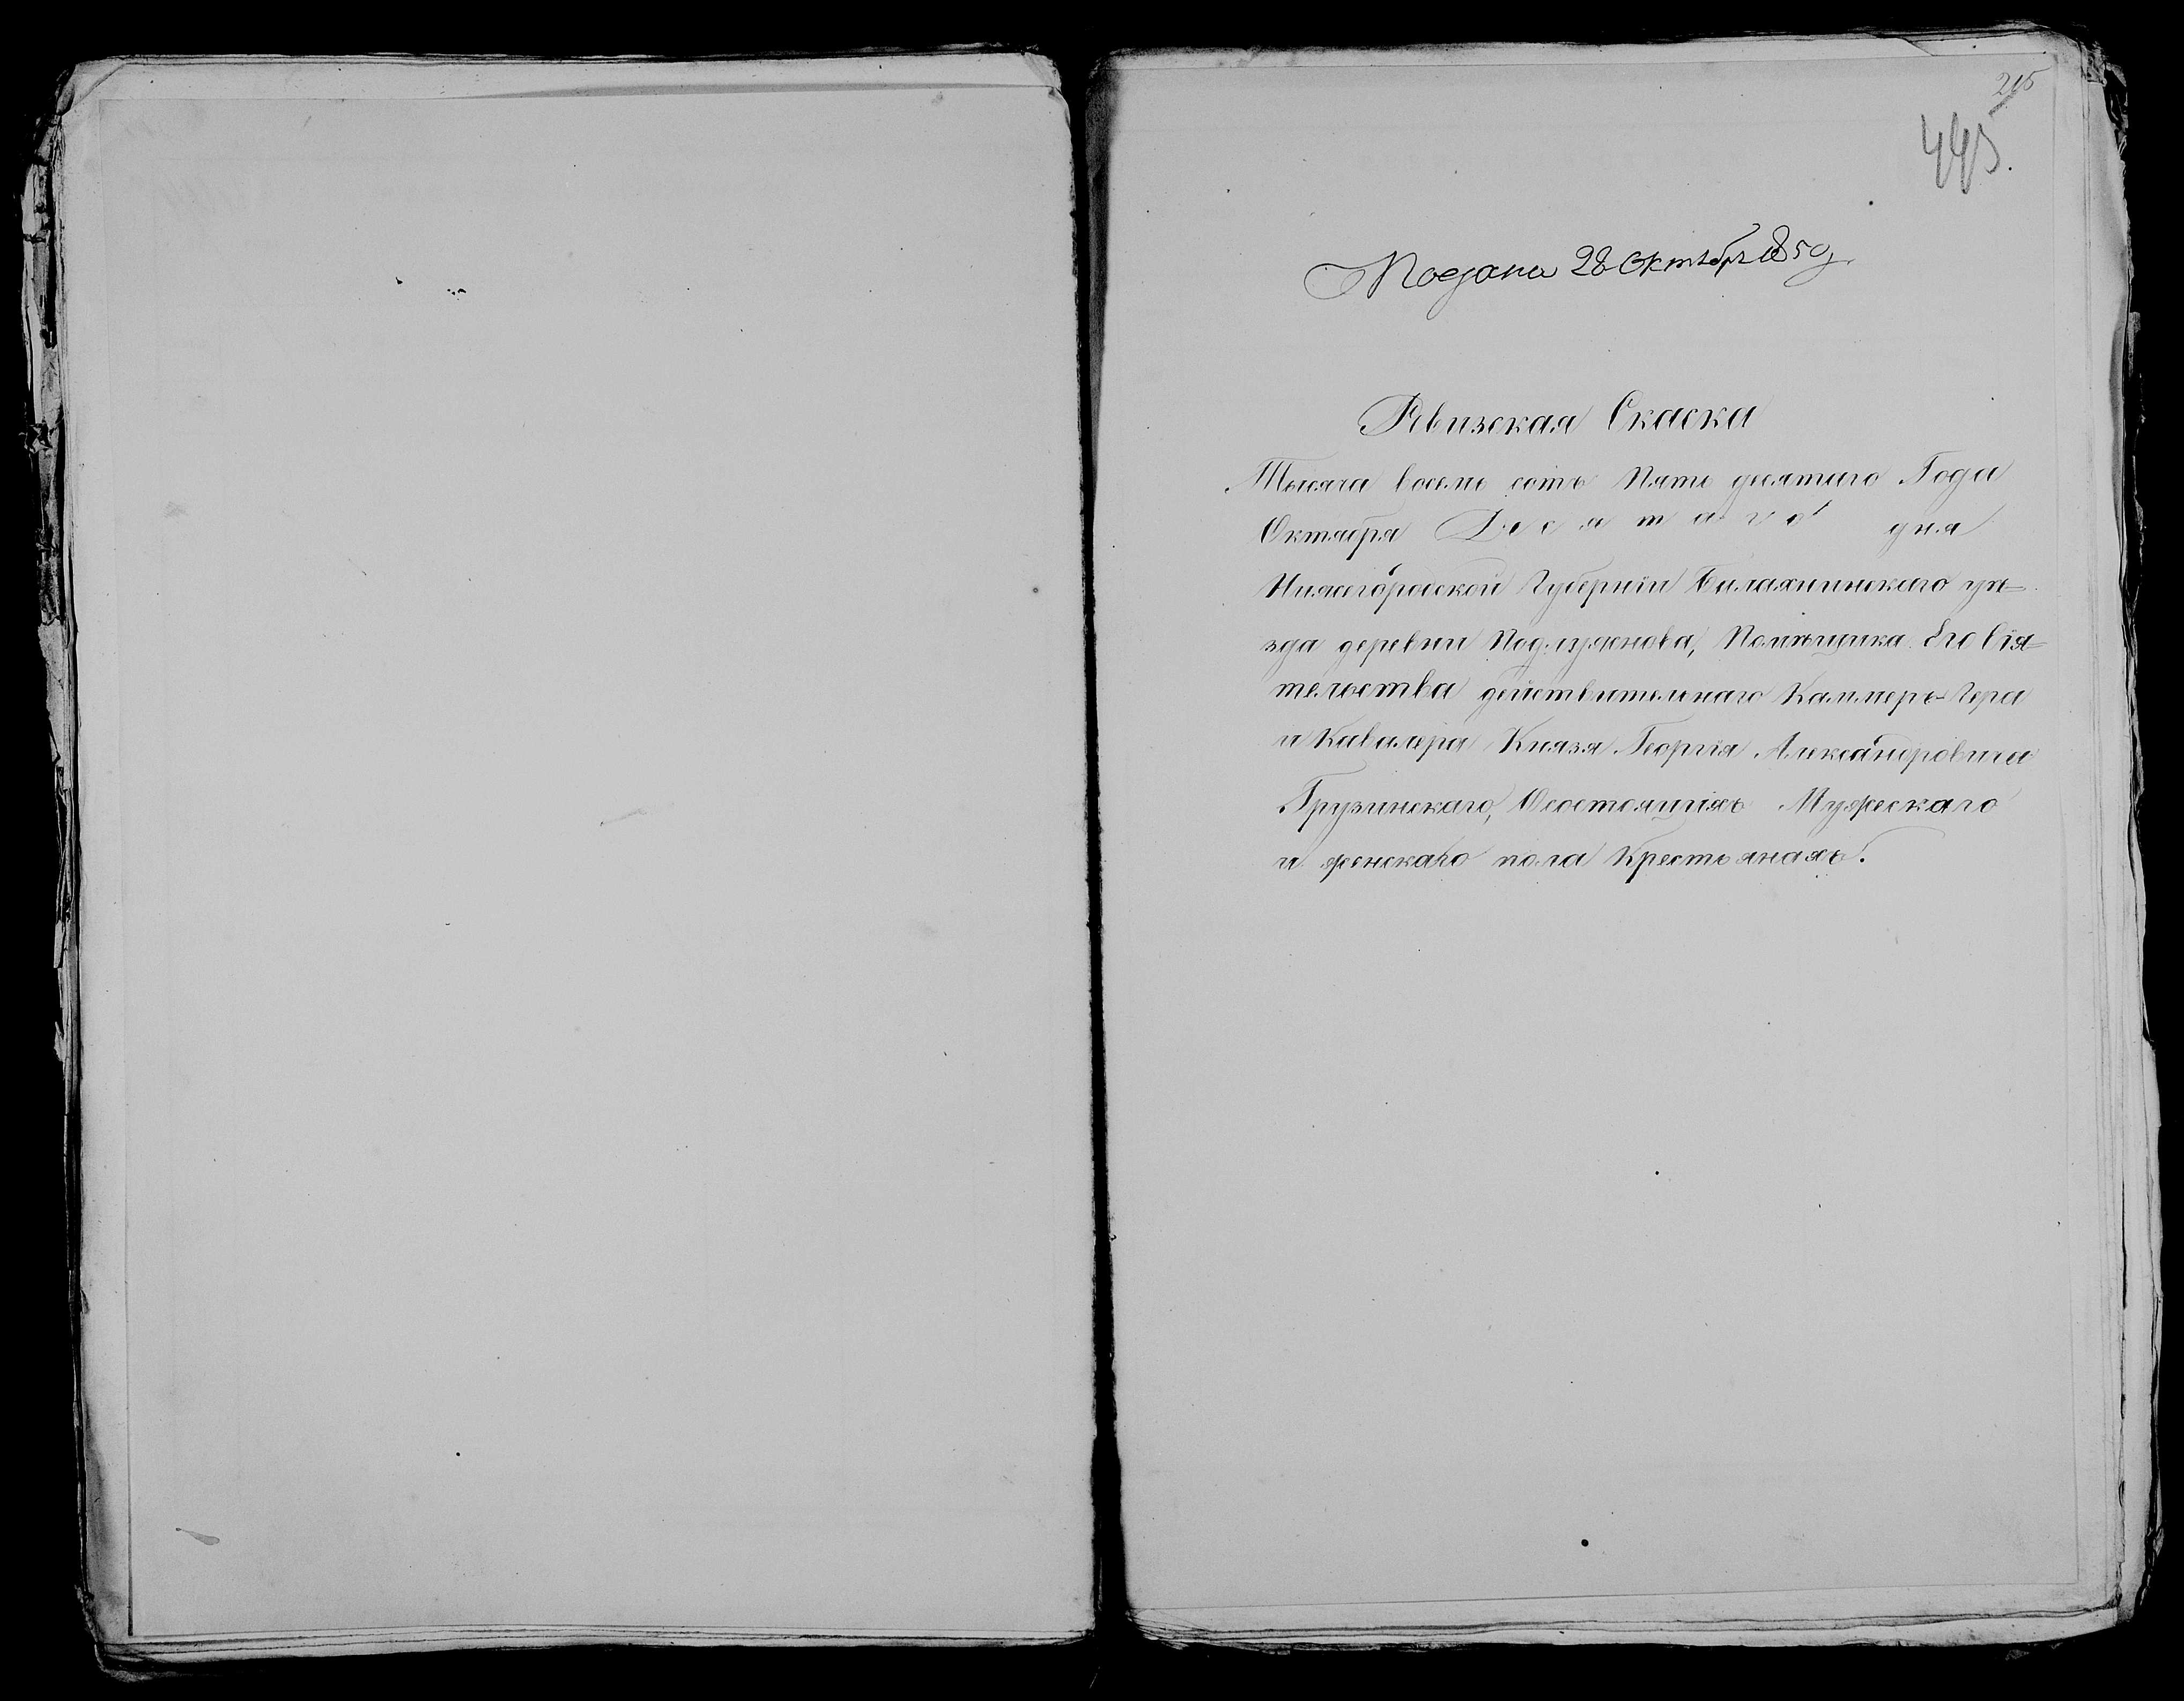 215
445.
Подана 28 Октября 1850 г.
Ревизская Скаска
Тысяча восемь сотъ Пять десятаго Года
Октября Десятаго дня
Нижегородской Губерніи Балахнинскаго уѣ-
зда деревни Подлужнова, Помѣщика Его Сія-
тельства действительнаго Каммеръ-Гера
и Кавалера Князя Георгія Александровича
Грузинскаго, Осостоящихъ Мужескаго
и женскаго пола Крестьянахъ.